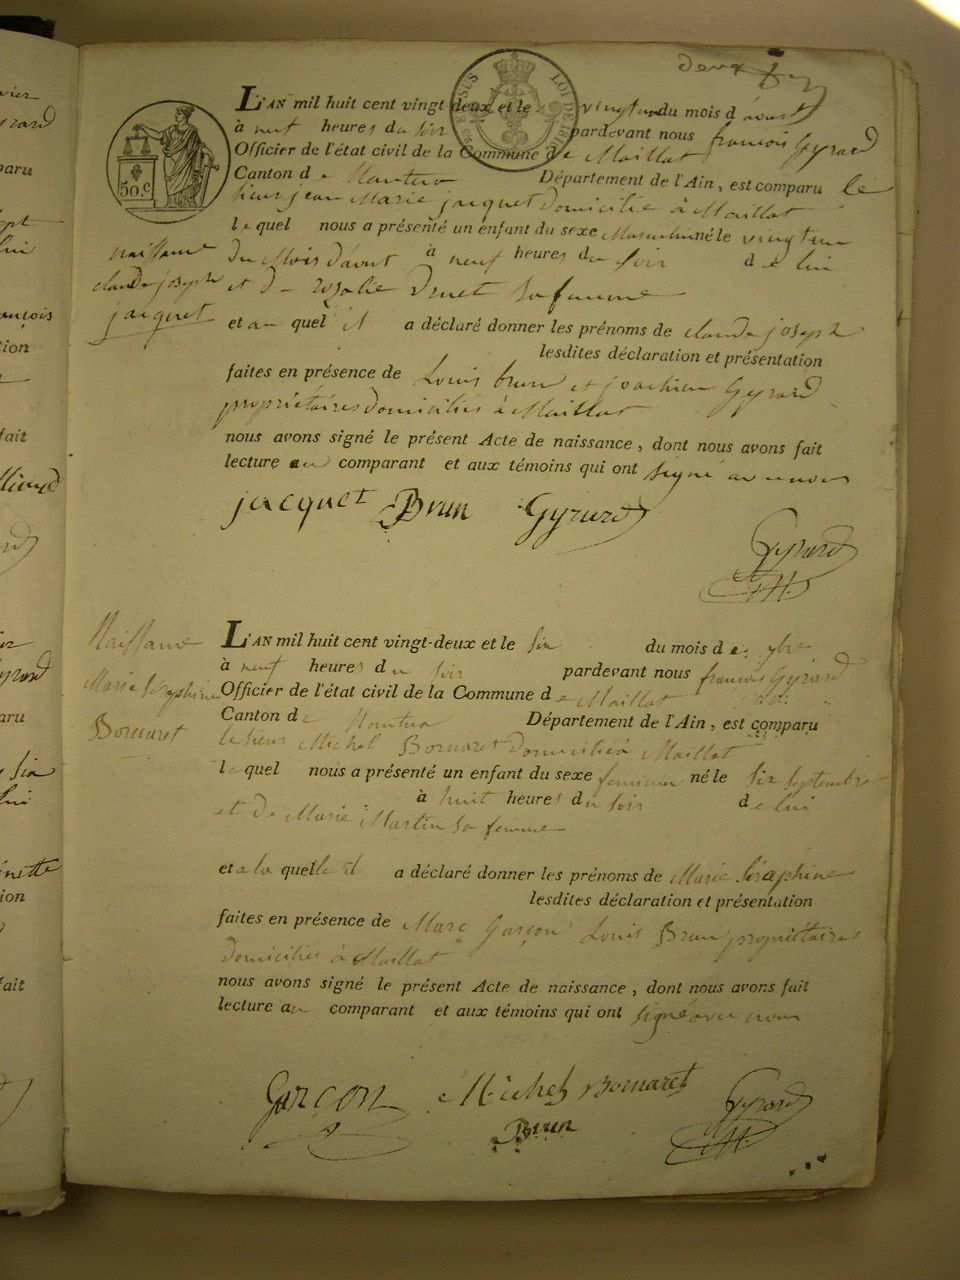 deux
L'AN mil huit cent vingt-deux et le vingt un du mois d'avout
à neuf heures du soir pardevant nous francois Gyrard
Officier de l'état civil de la Commune de Maillat
Canton de Nantua Département de l'Ain, est comparu le
sieur jean Marie jacquet domicilié à Maillat
lequel nous a présenté un enfant du sexe Masculin né le vingt un
du Mois d'avout à neuf heures du soir de lui
et de rozalie Druet sa femme
et auquel il a déclaré donner les prénoms de claude joseph
lesdites déclaration et présentation
faites en présence de Louis brun et joachim Gyrard
propriétaires domiciliés à Maillat
nous avons signé le présent Acte de naissance, dont nous avons fait
lecture au comparant et aux témoins qui ont signé avec nous
jacquet Brun Gyrard
Gyrard
naissance
claude joseph
jacquet
50.C
LOI DE
L'AN mil huit cent vingt-deux et le six du mois de 7bre
à neuf heures du soir pardevant nous francois Gyrard
Officier de l'état civil de la Commune de Maillat
Canton de Nantua Département de l'Ain, est comparu
le sieur Michel Bornaret domicilié à Maillat
lequel nous a présenté un enfant du sexe feminin né le six septembre
à huit heures du soir de lui
et de Marie Martin sa femme
et a laquelle il a déclaré donner les prénoms de Marie Séraphine
lesdites déclaration et présentation
faites en présence de Marc Garçon Louis Brun propriétaires
domiciliés à Maillat
nous avons signé le présent Acte de naissance, dont nous avons fait
lecture au comparant et aux témoins qui ont signé avec nous
Garcon Michel Bornaret Gyrard
Brun
Naissance
Marie Séraphine
Bornaret